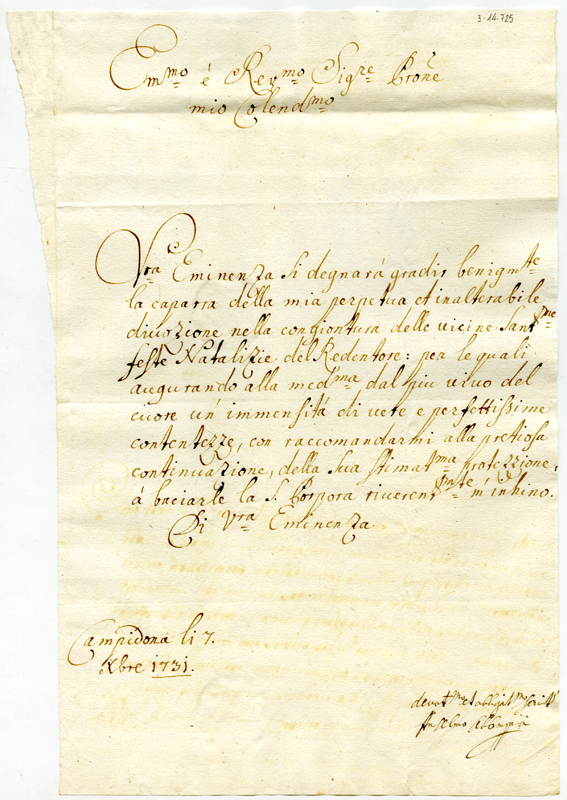 3-14-725
Em.mo é Rev.mo Sig.re Prone
mio Colend.mo
V.ra Eminenza si degnará gradir benigm.te
la caparra della mia perpetua et inalterabile
divozione nella congiontura delle vicine Sant.me
feste Natalizie del Redentore: per le quali
augurando alla med.ma dal piu vivo del
cuore un immensitá di vere e perfettissime
contentezze, con raccomandarmi alla pretiosa
continuazione, della Sua stimat.ma protezzione,
á baciarle la S. Porpora riverent.mte m'inhino.
Di V.ra Eminenza
Campidona li 7.
Xbre 1731.
devot.mo et obligat.mo
Anselmo